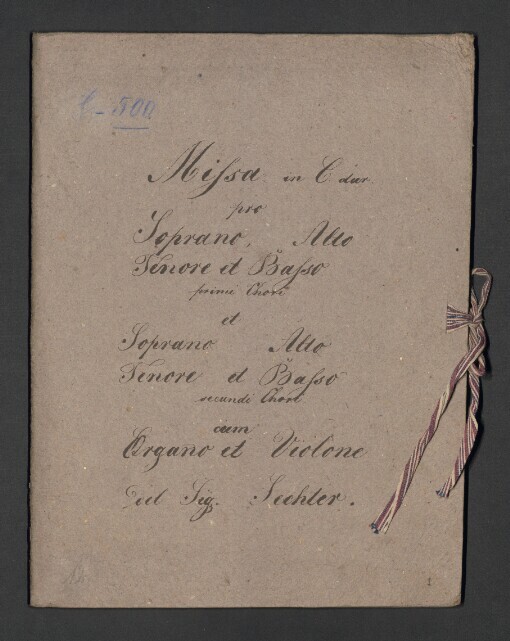 C-500
Missa in C dur
pro
Soprano, Alto
Tenore et Basso
primi Chori
et
Soprano Alto
Tenore et Basso
secundi Chori
cum
Organo et Violone
Del Sig. Sechter.